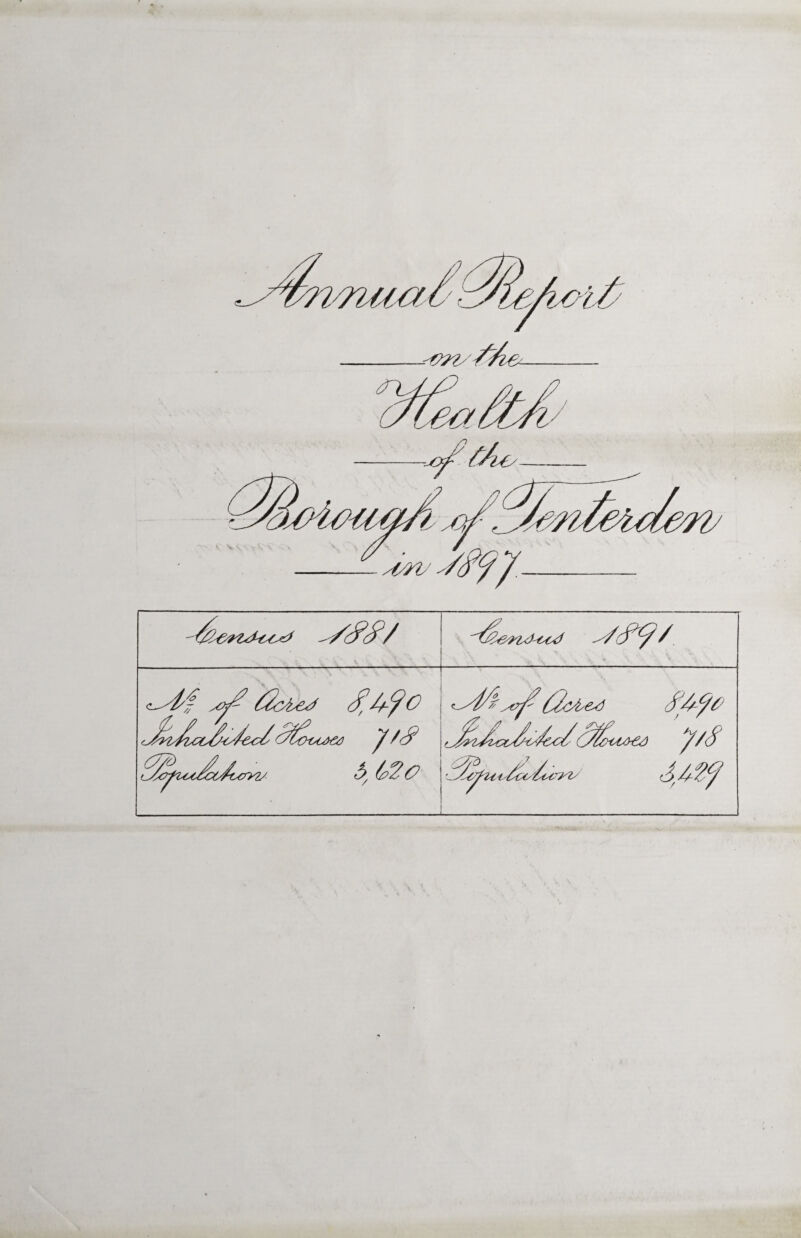 Annual Report
on the
Health
of the
Borough of Tenterden
in 1897.
Census 1881
No. of Acres 8,490
Inhabited Houses 718
Population 3,620
Census 1891.
No. of Acres 8,490
Inhabited Houses 718
Population 3,429